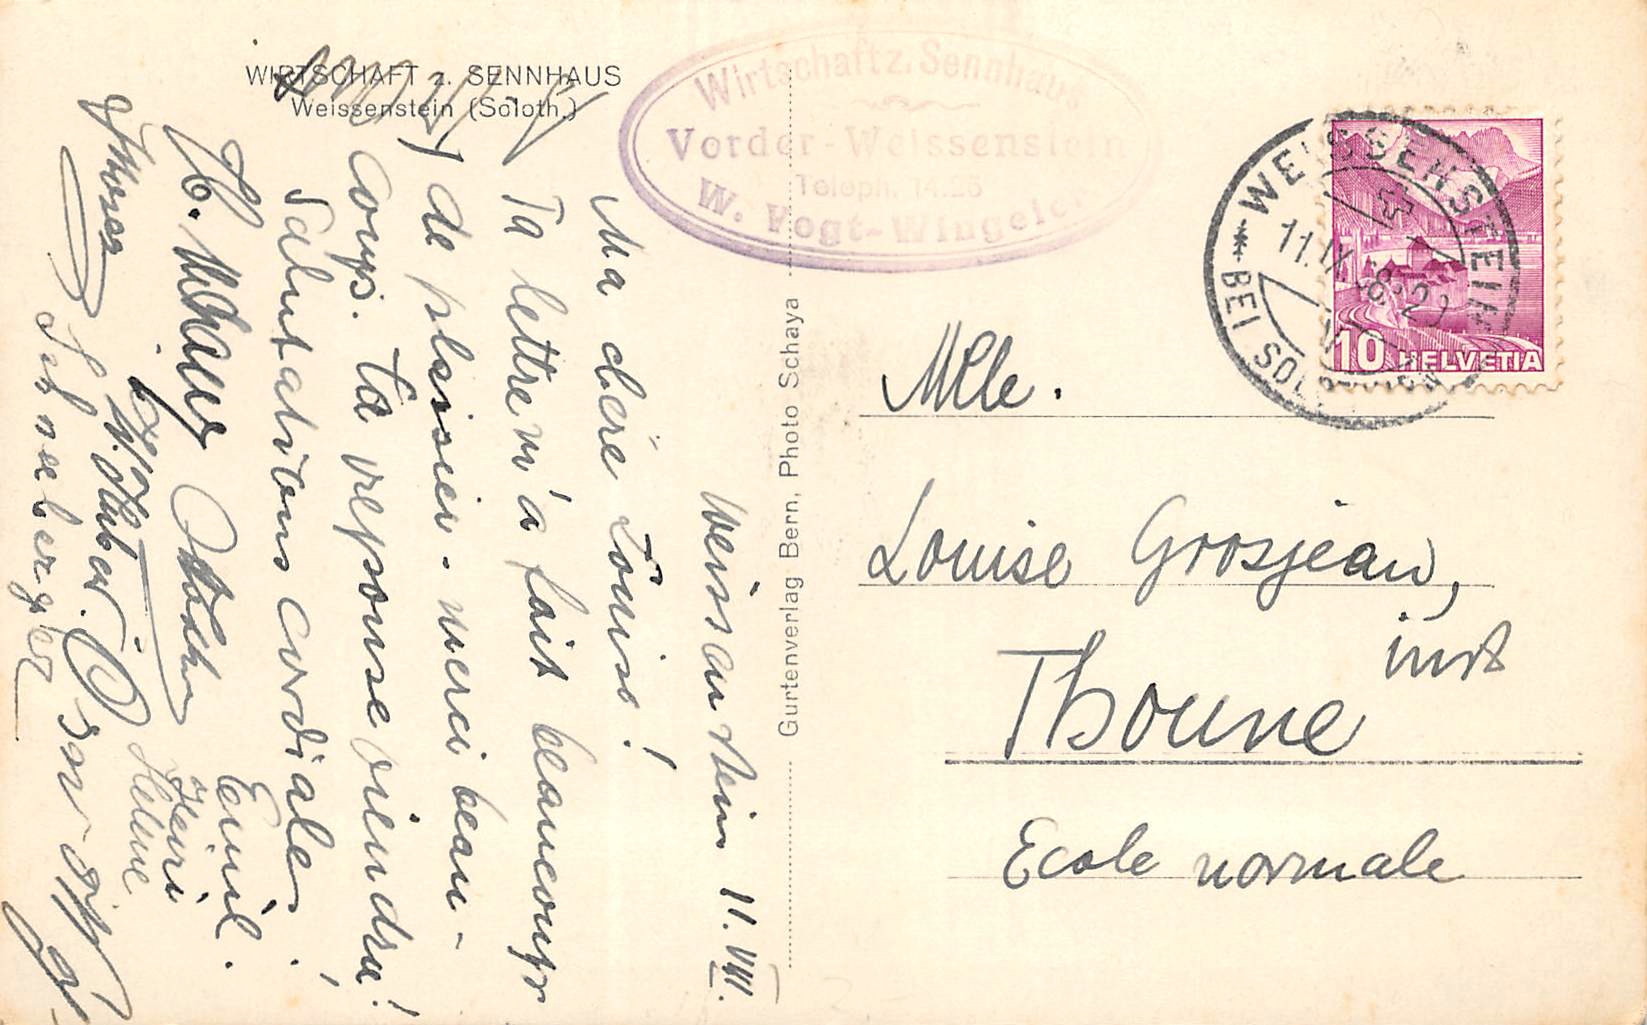 WIRTSCHAFT z. SENNHAUS
Weissenstein (Soloth.)
Wirtschaft z. Sennhaus
Vorder-Weissenstein
Teleph. 14.26
W. Vogt-Wingeier
WEISSENSTEIN
BEI SOLOTHURN
10 HELVETIA
Gurtenverlag Bern, Photo Schaya
Weissenstein 11. VIII.
Ma chère Louise!
Ta lettre m'a fait beaucoup
de plaisir. merci beau-
coup. Ta reponse viendra!
Salutations cordiales.
Emil.
Heiri
Helene
H. Huber.
Schneeberger
Mlle.
Louise Grosjean,
inst
Thoune
Ecole normale